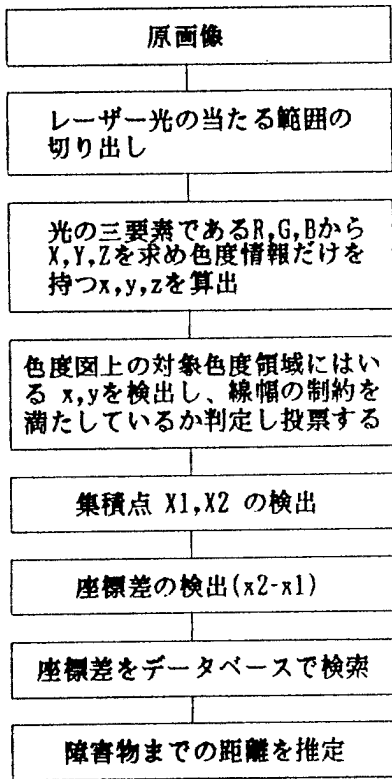 原画像
レーザー光の当たる範囲の
切り出し
光の三要素であるR,G,Bから
X,Y,Zを求め色度情報だけを
持つx,y,zを算出
色度図上の対象色度領域にはい
る x,yを検出し、線幅の制約を
満たしているか判定し投票する
集積点 X1,X2 の検出
座標差の検出(x2-x1)
座標差をデータベースで検索
障害物までの距離を推定